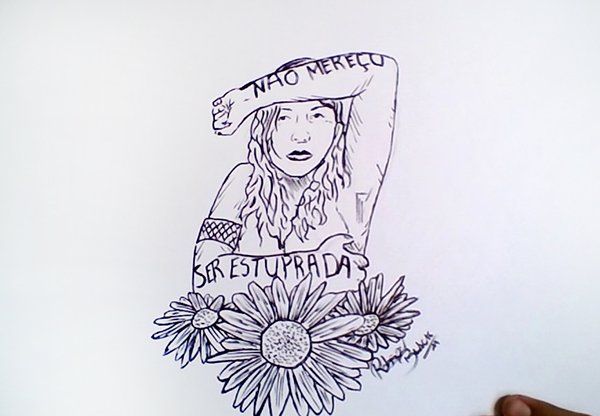 NÃO MEREÇO
SER ESTUPRADA